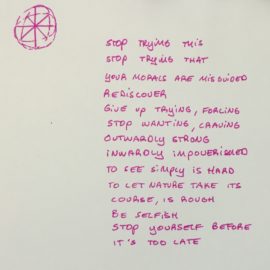 STOP TRYING THIS
STOP TRYING THAT
YOUR MORALS ARE MISGUIDED
REDISCOVER
GIVE UP TRYING, FORCING
STOP WANTING, CRAVING
OUTWARDLY STRONG
INWARDLY IMPOVERISHED
TO SEE SIMPLY IS HARD
TO LET NATURE TAKE ITS
COURSE, IS ROUGH
BE SELFISH
STOP YOURSELF BEFORE
IT'S TOO LATE